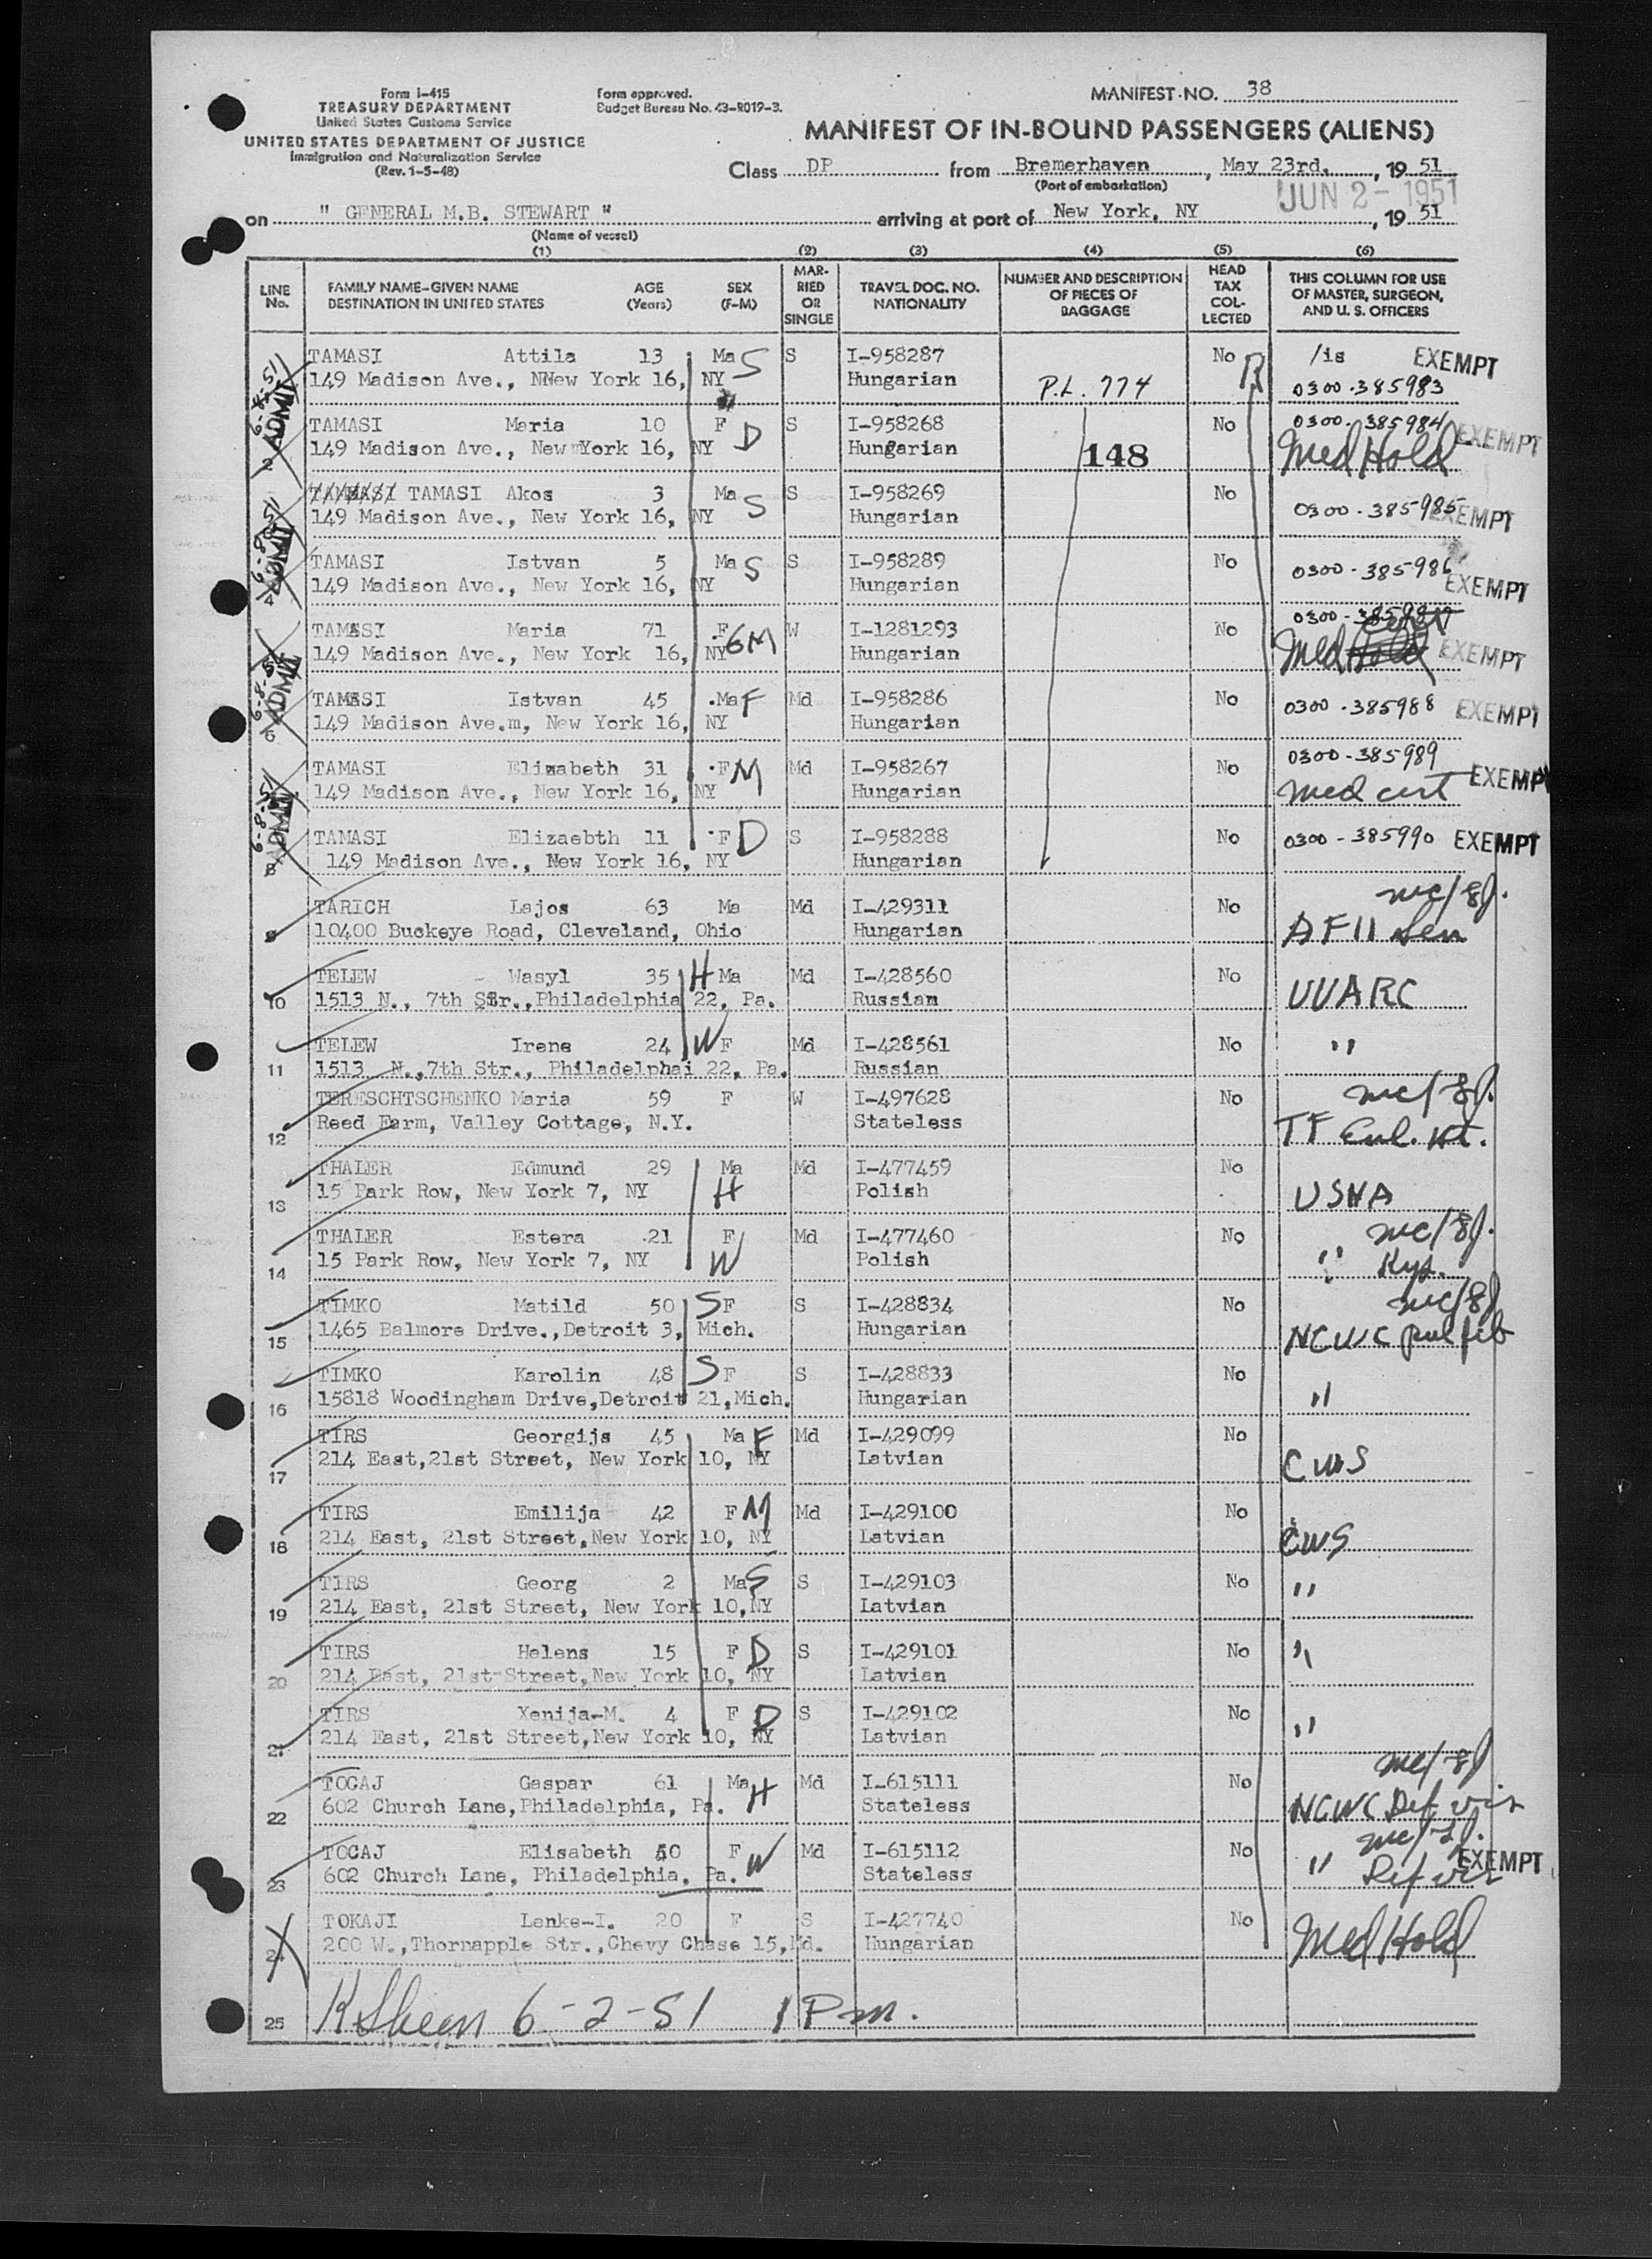 Form I-415
TREASURY DEPARTMENT
United States Customs Service
UNITED STATES DEPARTMENT OF JUSTICE
Immigration and Naturalization Service
(Rev. 1-5-48)
Form approved.
Budget Bureau No. 43-R019-3.
MANIFEST NO. 38
MANIFEST OF IN-BOUND PASSENGERS (ALIENS)
Class DP from Bremerhaven, May 23rd., 19 51
(Port of embarkation)
JUN 2 - 1951
on " GENERAL M.B. STEWART " arriving at port of New York, NY, 19 51
(Name of vessel)
(1) (2) (3) (4) (5) (6)
LINE No. FAMILY NAME-GIVEN NAME DESTINATION IN UNITED STATES AGE (Years) SEX (F-M) MARRIED OR SINGLE TRAVEL DOC. NO. NATIONALITY NUMBER AND DESCRIPTION OF PIECES OF BAGGAGE HEAD TAX COLLECTED THIS COLUMN FOR USE OF MASTER, SURGEON, AND U. S. OFFICERS
TAMASI Attila 13 Ma S S I-958287 No /is EXEMPT
149 Madison Ave., NNew York 16, NY Hungarian P.L. 774 0300-385983
6-8-51 ADMIT
TAMASI Maria 10 F D S I-958268 No 0300-385984 EXEMPT
2 149 Madison Ave., New York 16, NY Hungarian 148 Med Hold
TAMASI TAMASI Akos 3 Ma S S I-958269 No
149 Madison Ave., New York 16, NY Hungarian 0300-385985 EXEMPT
6-8-51 ADMIT
TAMASI Istvan 5 Ma S S I-958289 No 0300-385986
4 149 Madison Ave., New York 16, NY Hungarian EXEMPT
TAMASI Maria 71 F GM W I-1281293 No 0300-385987
149 Madison Ave., New York 16, NY Hungarian Med Hold cert EXEMPT
6-8-51 ADMIT
TAMASI Istvan 45 Ma F Md I-958286 No 0300-385988 EXEMPT
6 149 Madison Ave.m, New York 16, NY Hungarian
TAMASI Elizabeth 31 F M Md I-958267 No 0300-385989 EXEMPT
149 Madison Ave., New York 16, NY Hungarian Med cert
6-8-51 ADMIT
TAMASI Elizaebth 11 F D S I-958288 No 0300-385990 EXEMPT
8 149 Madison Ave., New York 16, NY Hungarian
TARICH Lajos 63 Ma Md I-429311 No
9 10400 Buckeye Road, Cleveland, Ohio Hungarian AF II Sen
TELEW Wasyl 35 H Ma Md I-428560 No
10 1513 N., 7th Str.,Philadelphia 22, Pa. Russian UUARC
TELEW Irene 24 W F Md I-428561 No "
11 1513 N.,7th Str., Philadelphai 22, Pa. Russian
TERESCHTSCHENKO Maria 59 F W I-497628 No
12 Reed Farm, Valley Cottage, N.Y. Stateless TF Enl. Ht.
THALER Edmund 29 Ma Md I-477459 No
13 15 Park Row, New York 7, NY H Polish USNA
THALER Estera 21 F Md I-477460 No
14 15 Park Row, New York 7, NY W Polish " Kys.
TIMKO Matild 50 S F S I-428834 No
15 1465 Balmore Drive.,Detroit 3, Mich. Hungarian NCWC pul fib
TIMKO Karolin 48 S F S I-428833 No
16 15818 Woodingham Drive,Detroit 21,Mich. Hungarian "
TIRS Georgijs 45 Ma F Md I-429099 No
17 214 East,21st Street, New York 10, NY Latvian CWS
TIRS Emilija 42 F M Md I-429100 No
18 214 East, 21st Street,New York 10, NY Latvian CWS
TIRS Georg 2 Ma S S I-429103 No "
19 214 East, 21st Street, New York 10,NY Latvian
TIRS Helens 15 F D S I-429101 No "
20 214 East, 21st Street,New York 10, NY Latvian
TIRS Xenija-M. 4 F D S I-429102 No "
21 214 East, 21st Street,New York 10, NY Latvian
TOCAJ Gaspar 61 Ma H Md I-615111 No
22 602 Church Lane,Philadelphia, Pa. Stateless NCWC Def vis
TOCAJ Elisabeth 50 F W Md I-615112 No
23 602 Church Lane, Philadelphia, Pa. Stateless " Def vis EXEMPT
TOKAJI Lenke-I. 20 F S I-427740 No
24 200 W.,Thornapple Str.,Chevy Chase 15,Md. Hungarian Med Hold
25 K Sheen 6-2-51 1 Pm.